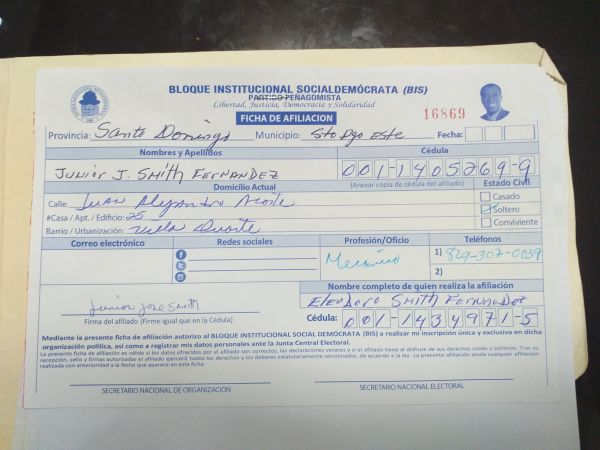 BLOQUE INSTITUCIONAL SOCIALDEMÓCRATA (BIS)
PARTIDO PEÑAGOMISTA
Libertad, Justicia, Democracia y Solidaridad
FICHA DE AFILIACION
16869
Provincia: Santo Domingo Municipio: Sto Dgo Este Fecha:
Nombres y Apellidos Cédula
JUNIOR J. SMITH FERNANDEZ 001-1405269-9
Domicilio Actual (Anexar copia de cédula del afiliado) Estado Civil
Calle: Juan Alejandro Acosta Casado
#Casa / Apt. / Edificio: 25 Soltero
Barrio / Urbanización: Villa Duarte Conviviente
Correo electrónico Redes sociales Profesión/Oficio Teléfonos
Mecanico 1) 829-307-0039
2)
Nombre completo de quien realiza la afiliación
Junior Jose Smith ELEODORO SMITH FERNANDEZ
Firma del afiliado (Firme igual que en la Cédula) Cédula: 001-1434971-5
Mediante la presente ficha de afiliación autorizo al BLOQUE INSTITUCIONAL SOCIAL DEMÓCRATA (BIS) a realizar mi inscripción única y exclusiva en dicha
organización política, así como a registrar mis datos personales ante la Junta Central Electoral.
La presente ficha de afiliación es válida si los datos ofrecidos por el afiliado son correctos, las declaraciones veraces y si el afiliado tiene el disfrute de sus derechos civiles y políticos. Tras su
recepción, sello y firmas autorizadas el afiliado ejercerá todos los derechos y los deberes estatutariamente sancionados, de acuerdo a la ley. La presente afiliación anula cualquier afiliación
realizada con anterioridad a la fecha que aparece en esta ficha.
SECRETARIO NACIONAL DE ORGANIZACION SECRETARIO NACIONAL ELECTORAL